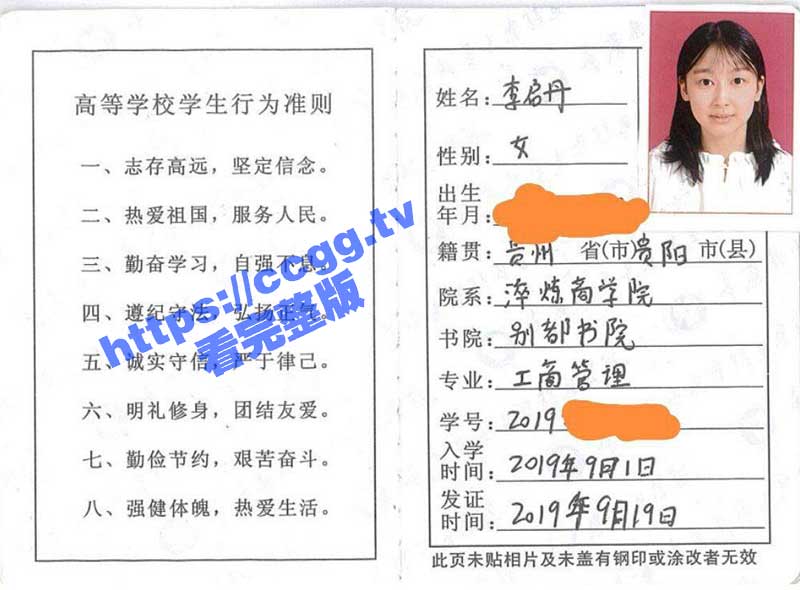 高等学校学生行为准则
一、志存高远，坚定信念。
二、热爱祖国，服务人民。
三、勤奋学习，自强不息。
四、遵纪守法，弘扬正气。
五、诚实守信，严于律己。
六、明礼修身，团结友爱。
七、勤俭节约，艰苦奋斗。
八、强健体魄，热爱生活。
https://ccgg.tv
看完整版
姓名：李启丹
性别：女
出生
年月：
籍贯：贵州 省(市)贵阳 市(县)
院系：淬炼商学院
书院：别都书院
专业：工商管理
学号：2019
入学
时间：2019年9月1日
发证
时间：2019年9月19日
此页未贴相片及未盖有钢印或涂改者无效